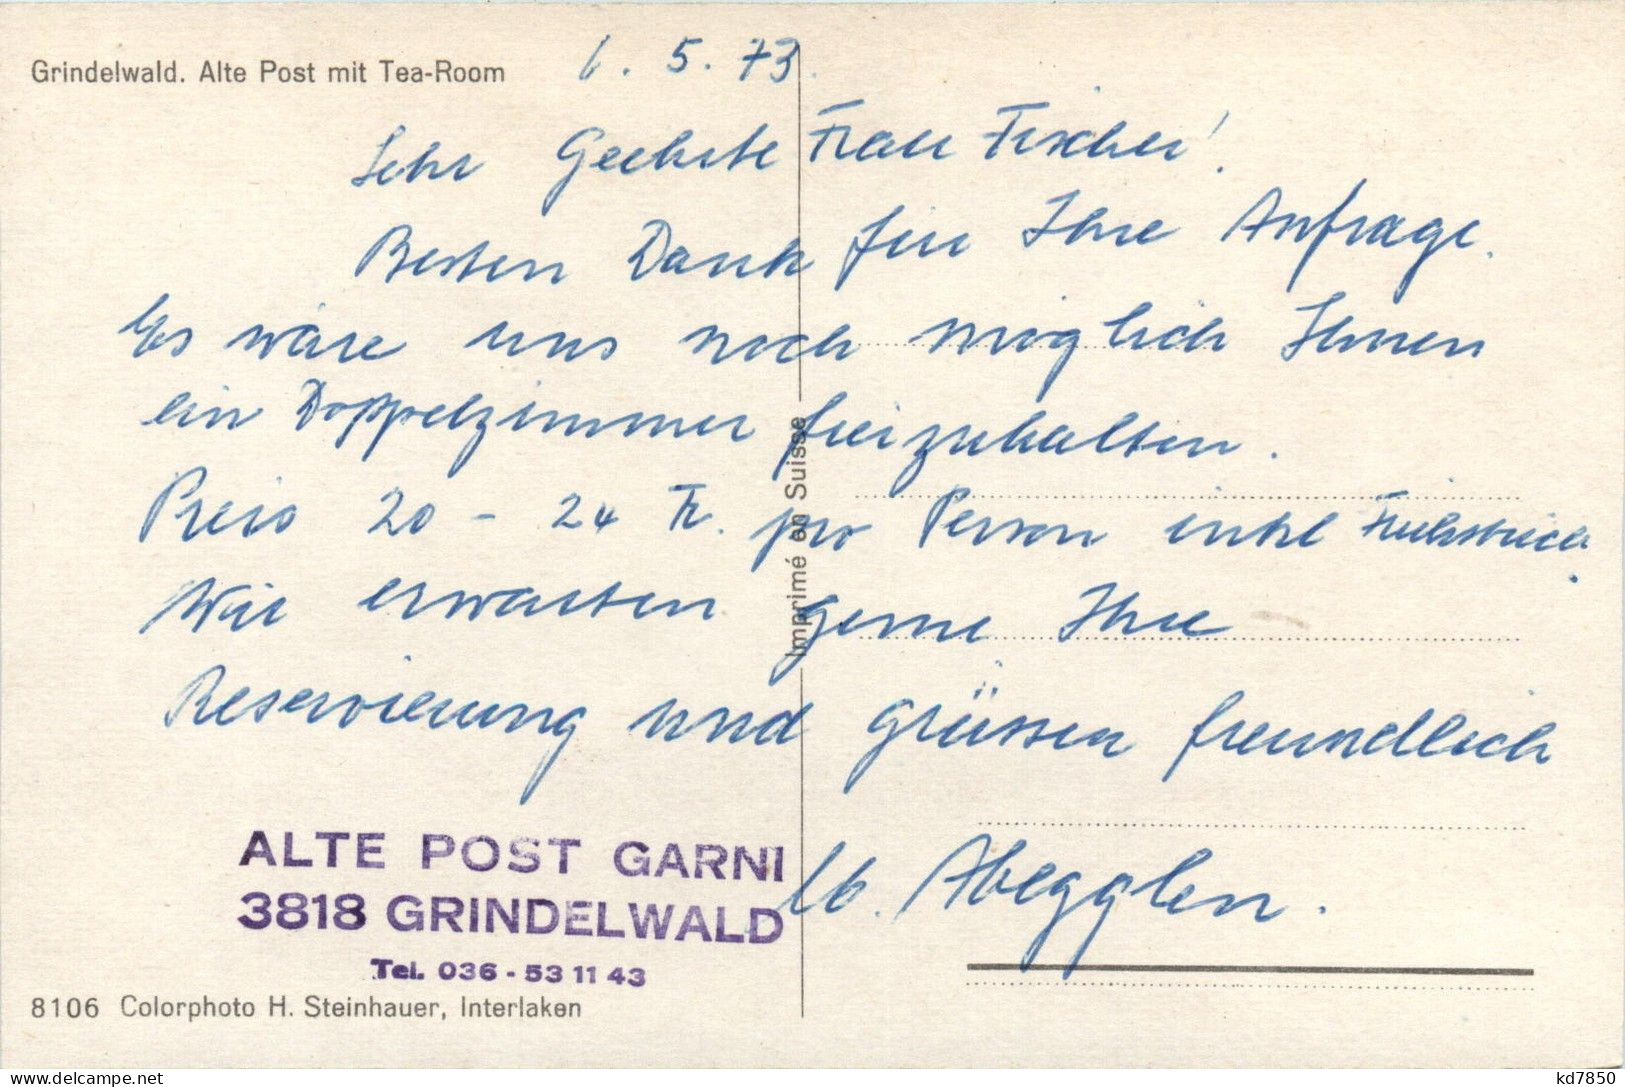 Grindelwald. Alte Post mit Tea-Room
6. 5. 73.
Sehr Geehrte Frau Fischer!
Besten Dank für Ihre Anfrage.
Es wäre uns noch möglich Ihnen
ein Doppelzimmer freizuhalten.
Preis 20 - 24 Fr. pro Person inkl Frühstück.
Wir erwarten gerne Ihre
Reservierung und grüssen freundlich
Abegglen.
Imprimé en Suisse
ALTE POST GARNI
3818 GRINDELWALD
Tel. 036 - 53 11 43
8106 Colorphoto H. Steinhauer, Interlaken
kd7850